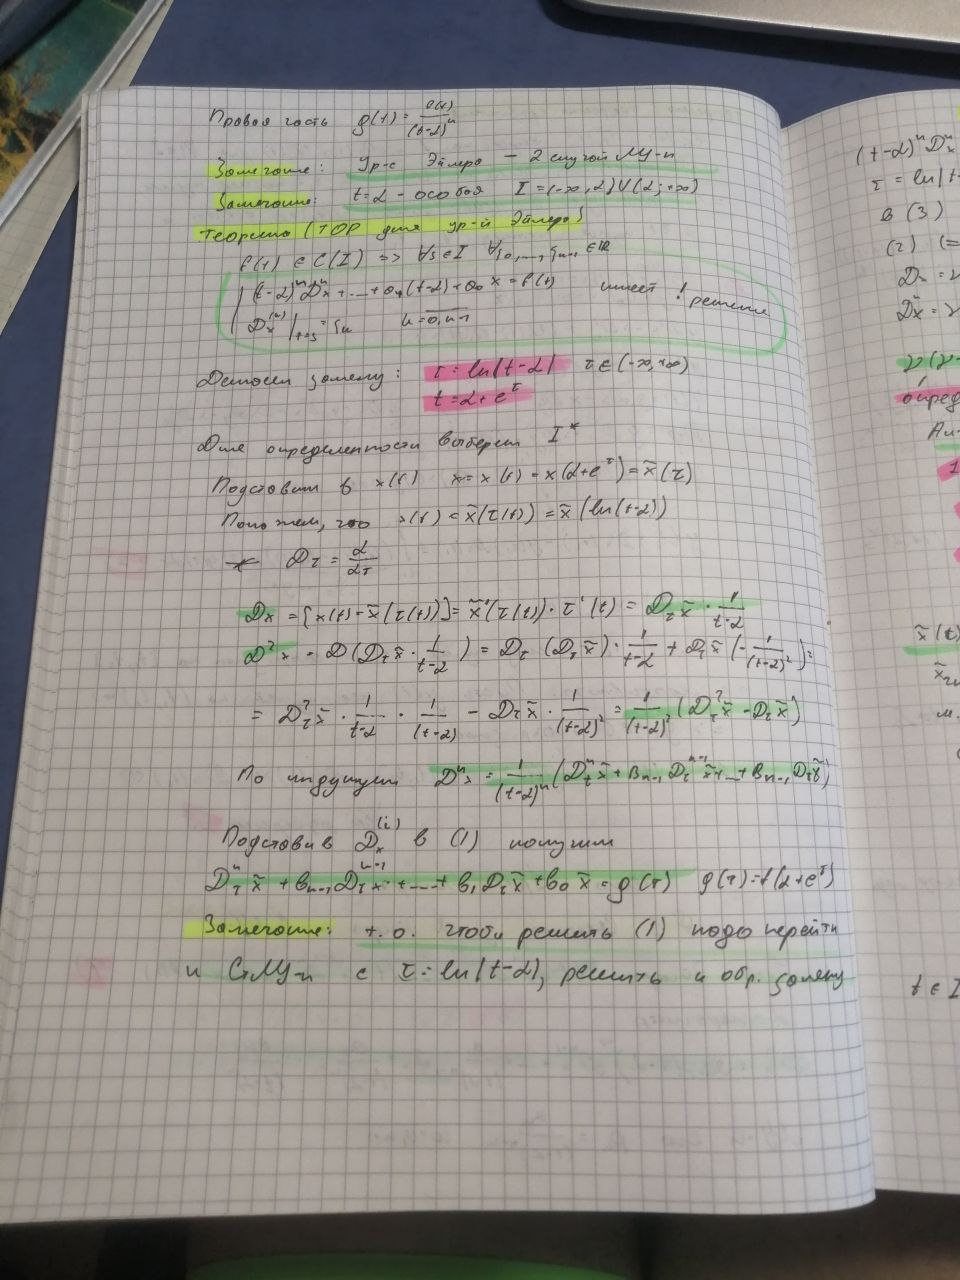 Правая часть g(t) = f(t)/(t-α)^n
Замечание: Ур-е Эйлера — 2 случай ЛУ-n
Замечание: t=α - особая I = (-∞,α)∪(α;+∞)
Теорема (ТОР для ур-й Эйлера)
f(t) ∈ C(I) => ∀s ∈ I ∀ξ0,...,ξn-1 ∈ R
(t-α)^n D^n x + ... + a1(t-α) + a0 x = f(t) имеет ! решение
D^(k) x |t=s = ξk k=0,n-1
Делаем замену: τ = ln|t-α| τ∈(-∞,+∞)
t = α + e^τ
Для определенности выберем I*
Подставим в x(t) x = x(t) = x(α+e^τ) = x̃(τ)
что x(t) = x̃(τ(t)) = x̃(ln(t-α))
* Dτ = d/dτ
Dx = [x(t) = x̃(τ(t))] = x̃'(τ(t))·τ'(t) = Dτ x̃ · 1/(t-α)
D²x = D(Dτ x̃ · 1/(t-α)) = Dτ(Dτ x̃)· 1/(t-α) + Dτ x̃(-1/(t-α)²) =
= Dτ² x̃ · 1/(t-α) · 1/(t-α) - Dτ x̃ · 1/(t-α)² = 1/(t-α)² (Dτ² x̃ - Dτ x̃)
По индукции D^n x = 1/(t-α)^n (Dτ^n x̃ + Bn-1 Dτ^n-1 x̃ + ... + Bn-1 Dτ x̃)
Подставив Dx^(i) в (1) получим
Dτ^n x̃ + bn-1 Dτ^n-1 x + ... + b1 Dτ x̃ + b0 x̃ = g(τ) g(τ) = f(α+e^τ)
Замечание: т.о. чтобы решить (1) надо перейти
к СтЛУ-n с τ = ln|t-α|, решить и обр. замену
(t-α)^n D^n x
τ = ln|t-
в (3)
(2) (=
опред
x̃(t)
t ∈ I